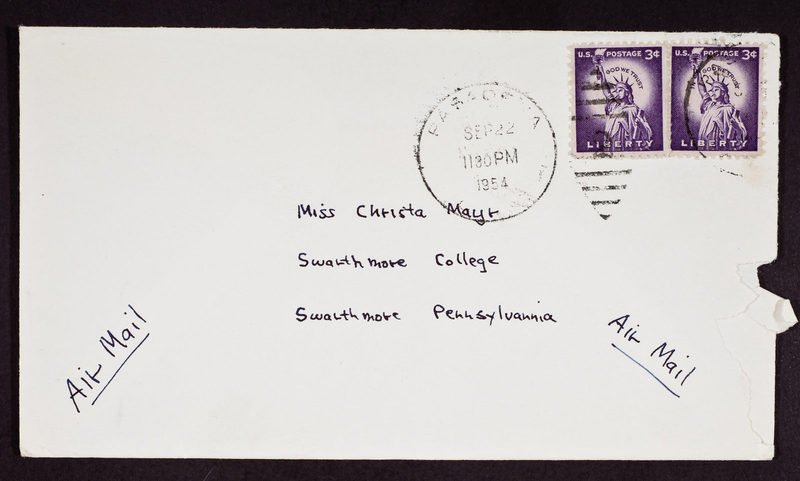 U.S. POSTAGE 3¢
IN GOD WE TRUST
LIBERTY
U.S. POSTAGE 3¢
GOD WE TRUST
LIBERTY
PASADENA
SEP 22
1130 PM
1954
Miss Christa Mayr
Swarthmore College
Swarthmore Pennsylvannia
Air Mail
Air Mail